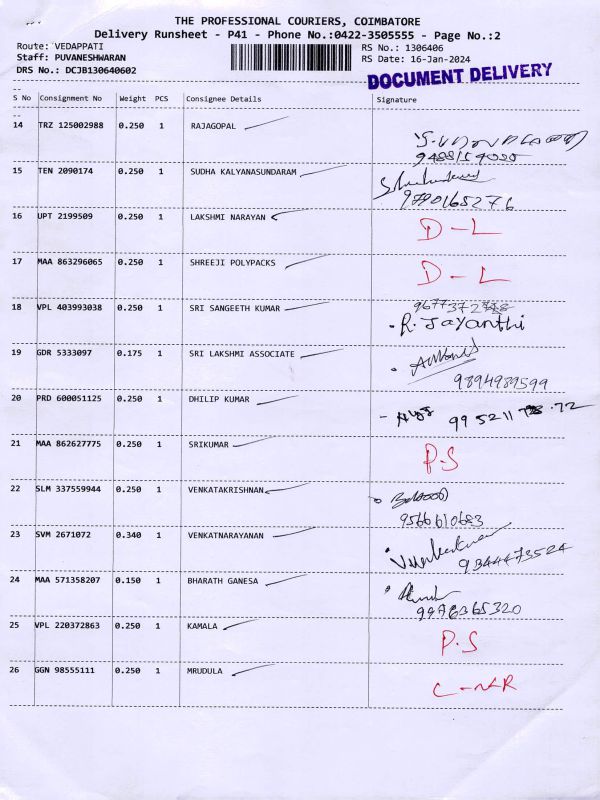 THE PROFESSIONAL COURIERS, COIMBATORE
Delivery Runsheet - P41 - Phone No.:0422-3505555 - Page No.:2
Route: VEDAPPATI RS No.: 1306406
Staff: PUVANESHWARAN RS Date: 16-Jan-2024
DRS No.: DCJB130640602 DOCUMENT DELIVERY
S No Consignment No Weight PCS Consignee Details Signature
14 TRZ 125002988 0.250 1 RAJAGOPAL
15 TEN 2090174 0.250 1 SUDHA KALYANASUNDARAM
9790165276
16 UPT 2199509 0.250 1 LAKSHMI NARAYAN D-L
17 MAA 863296065 0.250 1 SHREEJI POLYPACKS D-L
18 VPL 403993038 0.250 1 SRI SANGEETH KUMAR
R. Jayanthi
19 GDR 5333097 0.175 1 SRI LAKSHMI ASSOCIATE
9894989599
20 PRD 600051125 0.250 1 DHILIP KUMAR
21 MAA 862627775 0.250 1 SRIKUMAR P.S
22 SLM 337559944 0.250 1 VENKATAKRISHNAN
9566610683
23 SVM 2671072 0.340 1 VENKATNARAYANAN
9344473524
24 MAA 571358207 0.150 1 BHARATH GANESA
9976365320
25 VPL 220372863 0.250 1 KAMALA P.S
26 GGN 98555111 0.250 1 MRUDULA